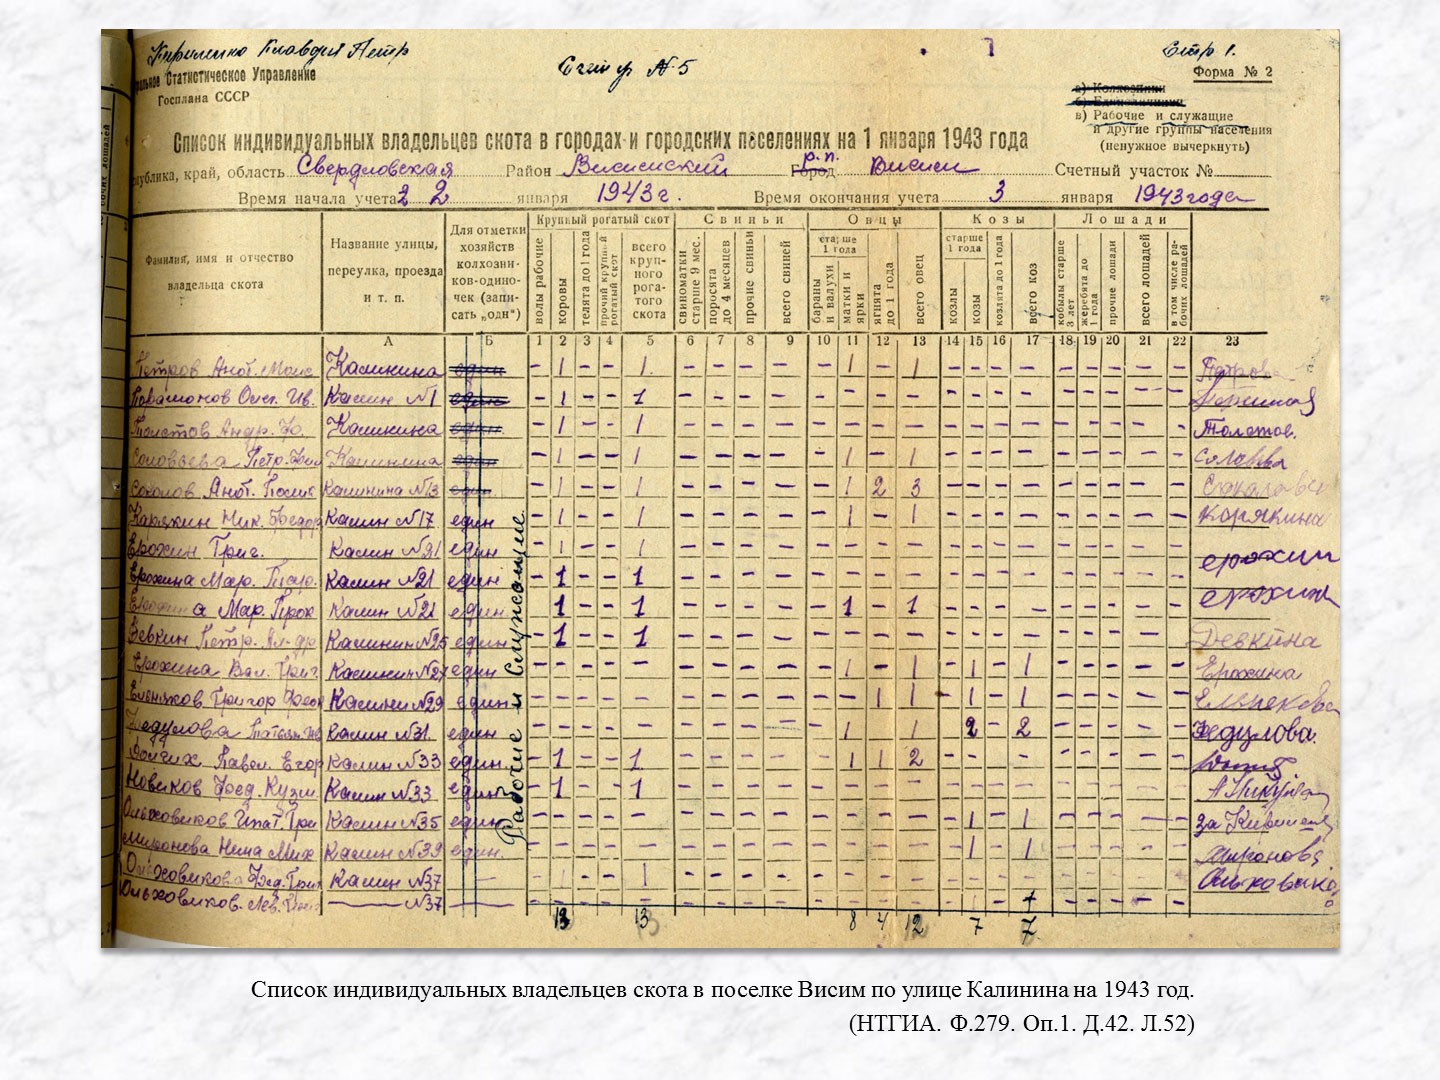 Кириленко Клавдия Петр
Стр 1.
Счетчр № 5
Форма № 2
Статистическое Управление
Госплана СССР
а) Колхозники
б) Единоличники
в) Рабочие и служащие
и другие группы населения
(ненужное вычеркнуть)
Список индивидуальных владельцев скота в городах и городских поселениях на 1 января 1943 года
край, область Свердловская Район Висимский р.п. Город Висим Счетный участок №
Время начала учета 2 2 января 1943 г. Время окончания учета 3 января 1943 года
Фамилия, имя и отчество владельца скота
Название улицы, переулка, проезда и т. п.
Для отметки хозяйств колхозников-одиночек (записать „одн")
Крупный рогатый скот Свиньи Овцы Козы Лошади
волы рабочие коровы телята до 1 года прочий крупный рогатый скот всего крупного рогатого скота
свиноматки старше 9 мес. поросята до 4 месяцев прочие свиньи всего свиней
старше 1 года бараны и валухи матки и ярки ягнята до 1 года всего овец
старше 1 года козлы козы козлята до 1 года всего коз
кобылы старше 3 лет жеребята до 1 года прочие лошади всего лошадей в том числе рабочих лошадей
А Б 1 2 3 4 5 6 7 8 9 10 11 12 13 14 15 16 17 18 19 20 21 22 23
Петров Анот. Моис Калинина един - 1 - - 1 - - - - - 1 - 1 - - - - - - - - - Петрова
Калин №1 един - 1 - - 1 - - - - - - - - - - - - - - - - -
Толстов Андр. Ф. Калинина един - 1 - - 1 - - - - - - - - - - - - - - - - - Толстов.
Соловьева Петр. Калинина един - 1 - - 1 - - - - - 1 - 1 - - - - - - - - -
Соколов Анот. Калинина №13 един - 1 - - 1 - - - - - 1 2 3 - - - - - - - - -
Карякин Ник. Федор Калин №17 един - 1 - - 1 - - - - - 1 - 1 - - - - - - - - - Корякина
Ерохин Григ. Калин №21 един - 1 - - 1 - - - - - - - - - - - - - - - - - ерохин
Ерохина Мар. Калин №21 един - 1 - - 1 - - - - - - - - - - - - - - - - -
Мар. Прок Калин №21 един - 1 - - 1 - - - - - 1 - 1 - - - - - - - - - ерохин
Девкин Петр. Калинин №25 един - 1 - - 1 - - - - - - - - - - - - - - - - - Девкина
Ерохина Вал. Григ. Калинин №27 един - - - - - - - - - - 1 - 1 - 1 - 1 - - - - - Ерохина
Григор Калинин №29 един - - - - - - - - - - - 1 1 - 1 - 1 - - - - -
Федулова Татьян Калин №31. един - - - - - - - - - - 1 - 1 - 2 - 2 - - - - - Федулова.
Долгих Павел. Егор Калин №33 един - 1 - - 1 - - - - - 1 1 2 - - - - - - - - -
Новиков Фед. Кузм. Калин №33 един - 1 - - 1 - - - - - - - - - - - - - - - - -
Ольховиков Ипат. Гри Калин №35 един - - - - - - - - - - - - - - 1 - 1 - - - - - за
Миронова Нина Мих Калин №39 един. - - - - - - - - - - - - - - 1 - 1 - - - - - Миронова.
Ольховикова Фед. Григ Калин №37 — - 1 - - 1 - - - - - - - - - - - - - - - - -
Ольховиков. Лев. — №37 —
Рабочие и Служащие.
13 13 8 4 12 7 7
Список индивидуальных владельцев скота в поселке Висим по улице Калинина на 1943 год.
(НТГИА. Ф.279. Оп.1. Д.42. Л.52)